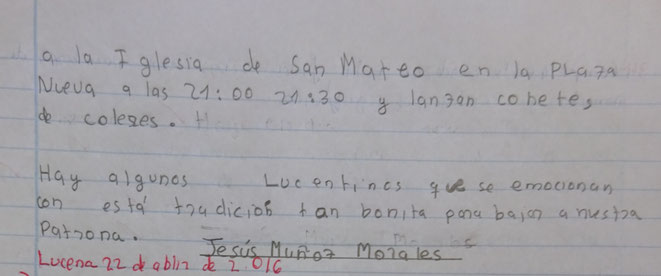 a la Iglesia de San Mateo en la PLaza
Nueva a las 21:00 21:30 y lanzan cohetes
de coleres.
Hay algunos Lucentinos que se emocionan
con está tradicion tan bonita para bajar a nuestra
Patrona.
Jesús Muñoz Morales
Lucena 22 de abliz de 2.016